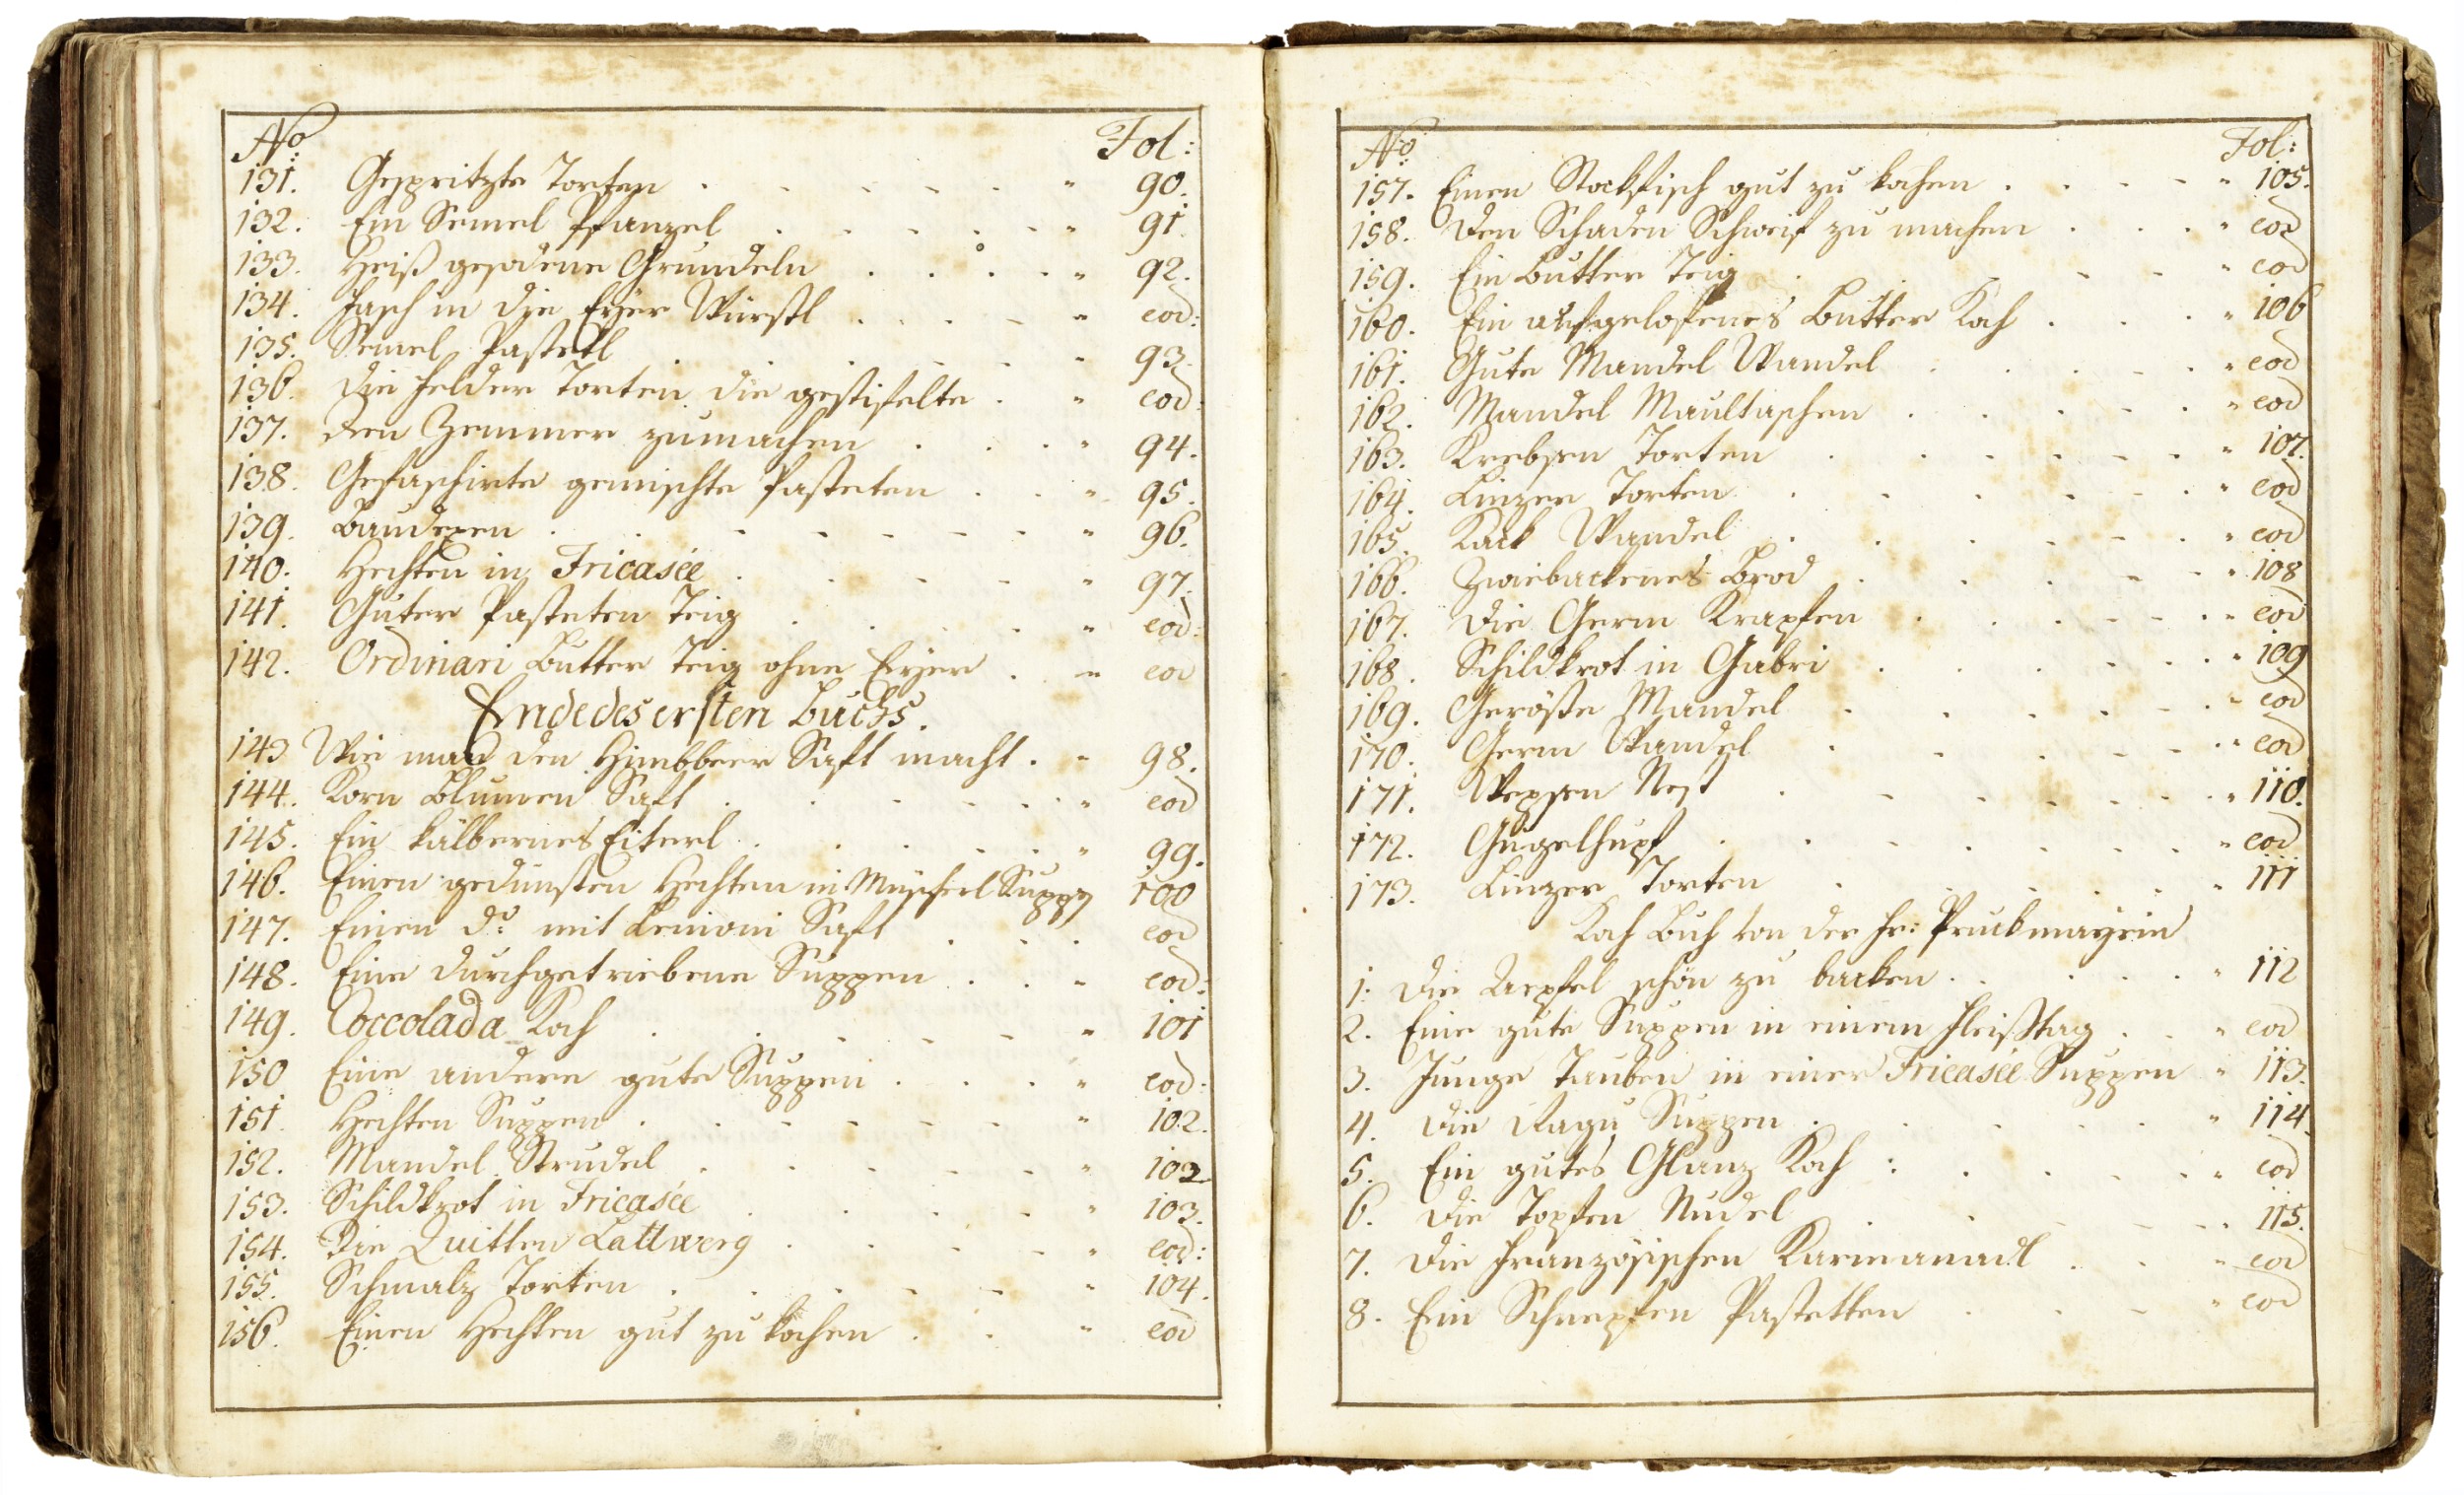 No Fol:
131. Gespritzte Torten . . . . . . " 90.
132. Ein Semel Pfanzel . . . . . " 91.
133. Heiß gesodene Grundeln . . . . " 92.
134. Fasch in die Eyer Würstl . . . . " eod:
135. Semel Pastetl . . . . . " 93.
136. Die Felder Torten die gestifelte . " eod:
137. Den Zemmer zumachen . . . " 94.
138. Gefaschirte gemischte Pasteten . . " 95.
139. . . . . . . " 96.
140. Hechten in Fricasée . . . . . " 97.
141. Guter Pasteten Teig . . . . " eod:
142. Ordinari Butter Teig ohne Eyer . " eod
Ende des ersten Buchs.
143 Wie man den Himbbeer Saft macht . " 98.
144. Korn Blumen Saft . . . . . " eod
145. Ein kälbernes Eiterl . . . . . " 99.
146. Einen gedünsten Hechten in Müscherl Suppen 100
147. Einen do mit Lemoni Saft . . . eod
148. Eine durchgetriebene Suppen . . " eod:
149. Coccolada Koch . . . . . " 101
150 Eine andere gute Suppen . . . " eod:
151. Hechten Suppen . . . . . . " 102.
152. Mandel Strudel . . . . . " 102.
153. Schildkrot in Fricasée . . . . " 103.
154. Die Quitten Lattwerg . . . . " eod:
155. Schmalz Torten . . . . . " 104.
156. Einen Hechten gut zu kochen . . " eod
No Fol:
157. Einen Stockfisch gut zu kochen . . . . " 105.
158. Den Schaden Schweif zu machen . . . " eod
159. Ein Butter Teig . . . . " eod
160. Ein aufgelofenes Butter Koch . . . " 106
161. Gute Mandel Wandel . . . . . " eod
162. Mandel Maultaschen . . . . . " eod
163. Krebsen Torten . . . . . . " 107.
164. Linzer Torten . . . . . . " eod
165. Kack Wandel . . . . . . " eod
166. Zwiebackenes Brod . . . . . " 108
167. Die Germ Krapfen . . . . . " eod
168. Schildkrot in Gabri . . . . . " 109
169. Geröste Mandel . . . . . . " eod
170. Germ Wandel . . . . . . " eod
171. Wepsen Nest . . . . . . " 110.
172. Gugelhupf . . . . . . . " eod
173. Linzer Torten . . . . . " 111
Koch Buch von der Fr: Pruckmayrin
1. Die Aepfel schön zu backen . . . . " 112
2. Eine gute Suppen in einem Fleißtag . . " eod
3. Junge Tauben in einer Fricasée Suppen " 113.
4. Die Ragu Suppen . . . . . " 114.
5. Ein gutes Glanz Koch : . . . . " eod
6. Die Topfen Nudel . . . . . " 115.
7. Die Französischen Karmanadl . . " eod
8. Ein Schnepfen Pastetten . . . " eod